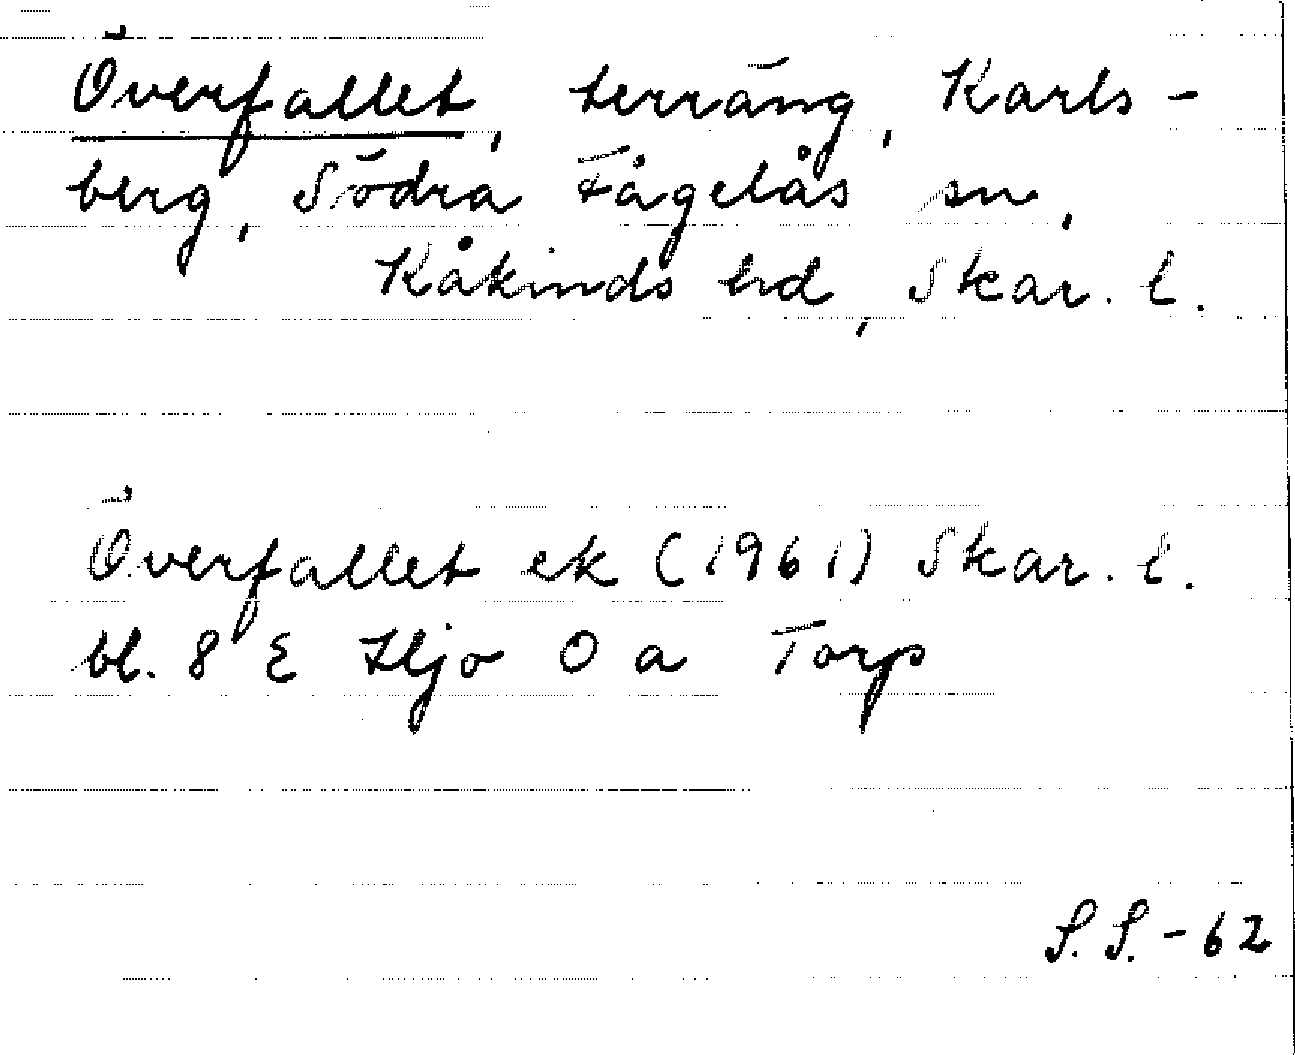 Överfallet, terräng, Karls-
berg, Södra Fågelås sn,
Kåkinds hd, Skar. l.
Överfallet ek (1961) Skar. l.
bl. 8 E Hjo 0 a Torp
S.S.-62